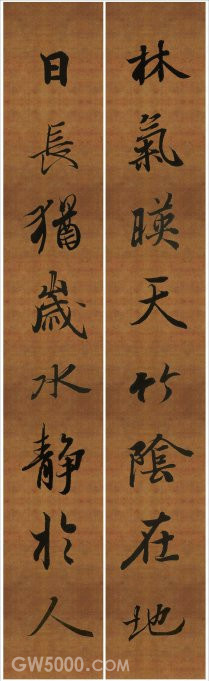 林氣暎天竹陰在地
日長猶歲水静於人
GW5000.com